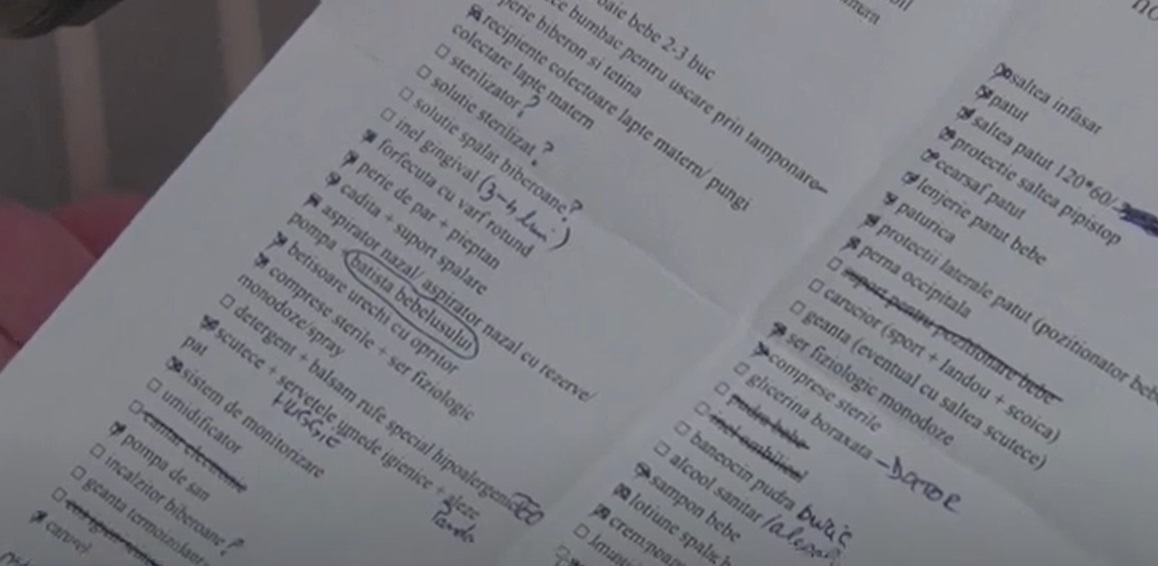 bebe 2-3 buc
bumbac pentru uscare prin tamponare
perie biberon si tetina
recipiente colectoare lapte matern/ pungi
colectare lapte matern
sterilizator ?
solutie sterilizat ?
solutie spalat biberoane ?
inel gingival (3-4 luni)
forfecuta cu varf rotund
perie de par + pieptan
cadita + suport spalare
aspirator nazal/ aspirator nazal cu rezerve/
pompa batista bebelusului
betisoare urechi cu opritor
comprese sterile + ser fiziologic
monodoze/spray
detergent + balsam rufe special hipoalergenic
scutece + servetele umede igienice + aleze
pat HUGGIE
sistem de monitorizare
umidificator
pompa de san
incalzitor biberoane ?
geanta termoizolanta
saltea infasat
patut
saltea patut 120*60/
protectie saltea pipistop
cearsaf patut
lenjerie patut bebe
paturica
protectii laterale patut (pozitionator bebe
perna occipitala
suport pentru pozitionare bebe
carucior (sport + landou + scoica)
geanta (eventual cu saltea scutece)
ser fiziologic monodoze
comprese sterile
glicerina boraxata
pudra bebe
inel ombilical
baneocin pudra
alcool sanitar
sampon bebe
lotiune